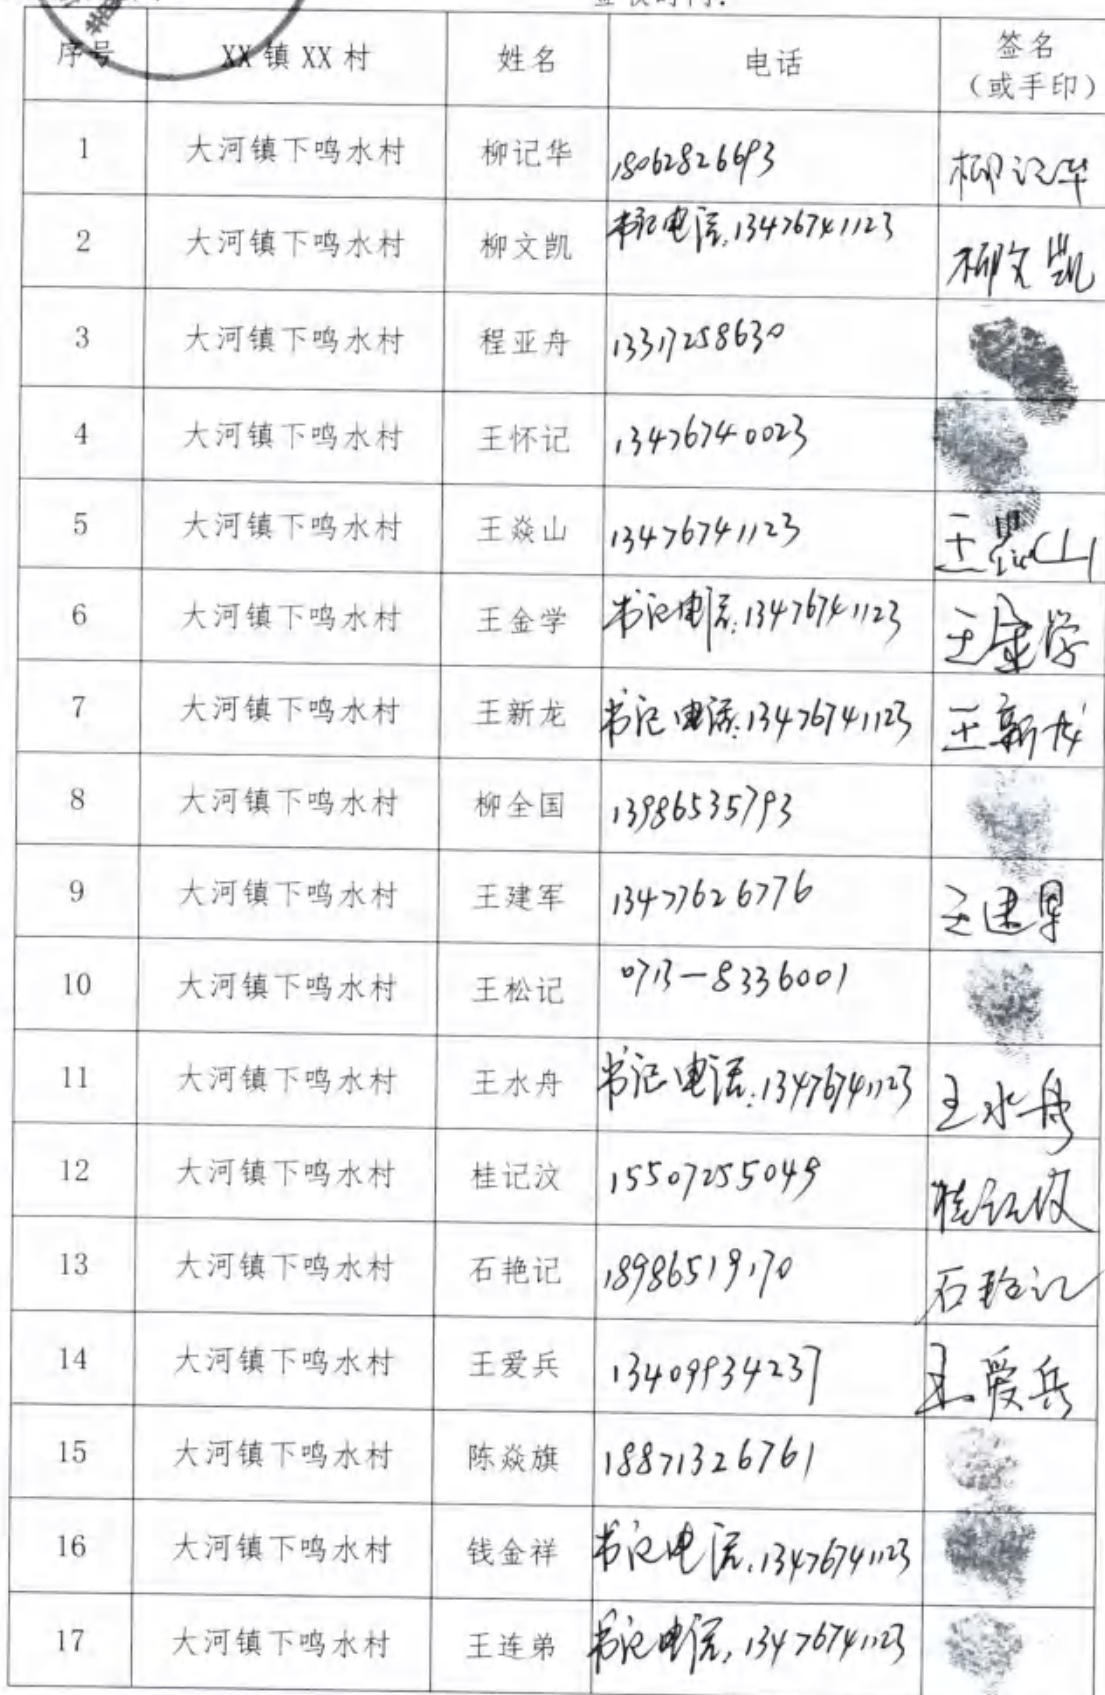 签收时间:
序号 XX镇XX村 姓名 电话 签名
(或手印)
1 大河镇下鸣水村 柳记华 18062826693 柳记华
2 大河镇下鸣水村 柳文凯 书记电话,13476741123 柳文凯
3 大河镇下鸣水村 程亚舟 13317258630
4 大河镇下鸣水村 王怀记 13476740023
5 大河镇下鸣水村 王焱山 13476741123 王焱山
6 大河镇下鸣水村 王金学 书记电话:13476741123 王金学
7 大河镇下鸣水村 王新龙 书记电话:13476741123 王新龙
8 大河镇下鸣水村 柳全国 13986535793
9 大河镇下鸣水村 王建军 13477626776 王建军
10 大河镇下鸣水村 王松记 0713-8336001
11 大河镇下鸣水村 王水舟 书记电话:13476741123 王水舟
12 大河镇下鸣水村 桂记汶 15507255049 桂记汶
13 大河镇下鸣水村 石艳记 18986519170 石艳记
14 大河镇下鸣水村 王爱兵 13409934237 王爱兵
15 大河镇下鸣水村 陈焱旗 18871326761
16 大河镇下鸣水村 钱金祥 书记电话,13476741123
17 大河镇下鸣水村 王连弟 书记电话,13476741123